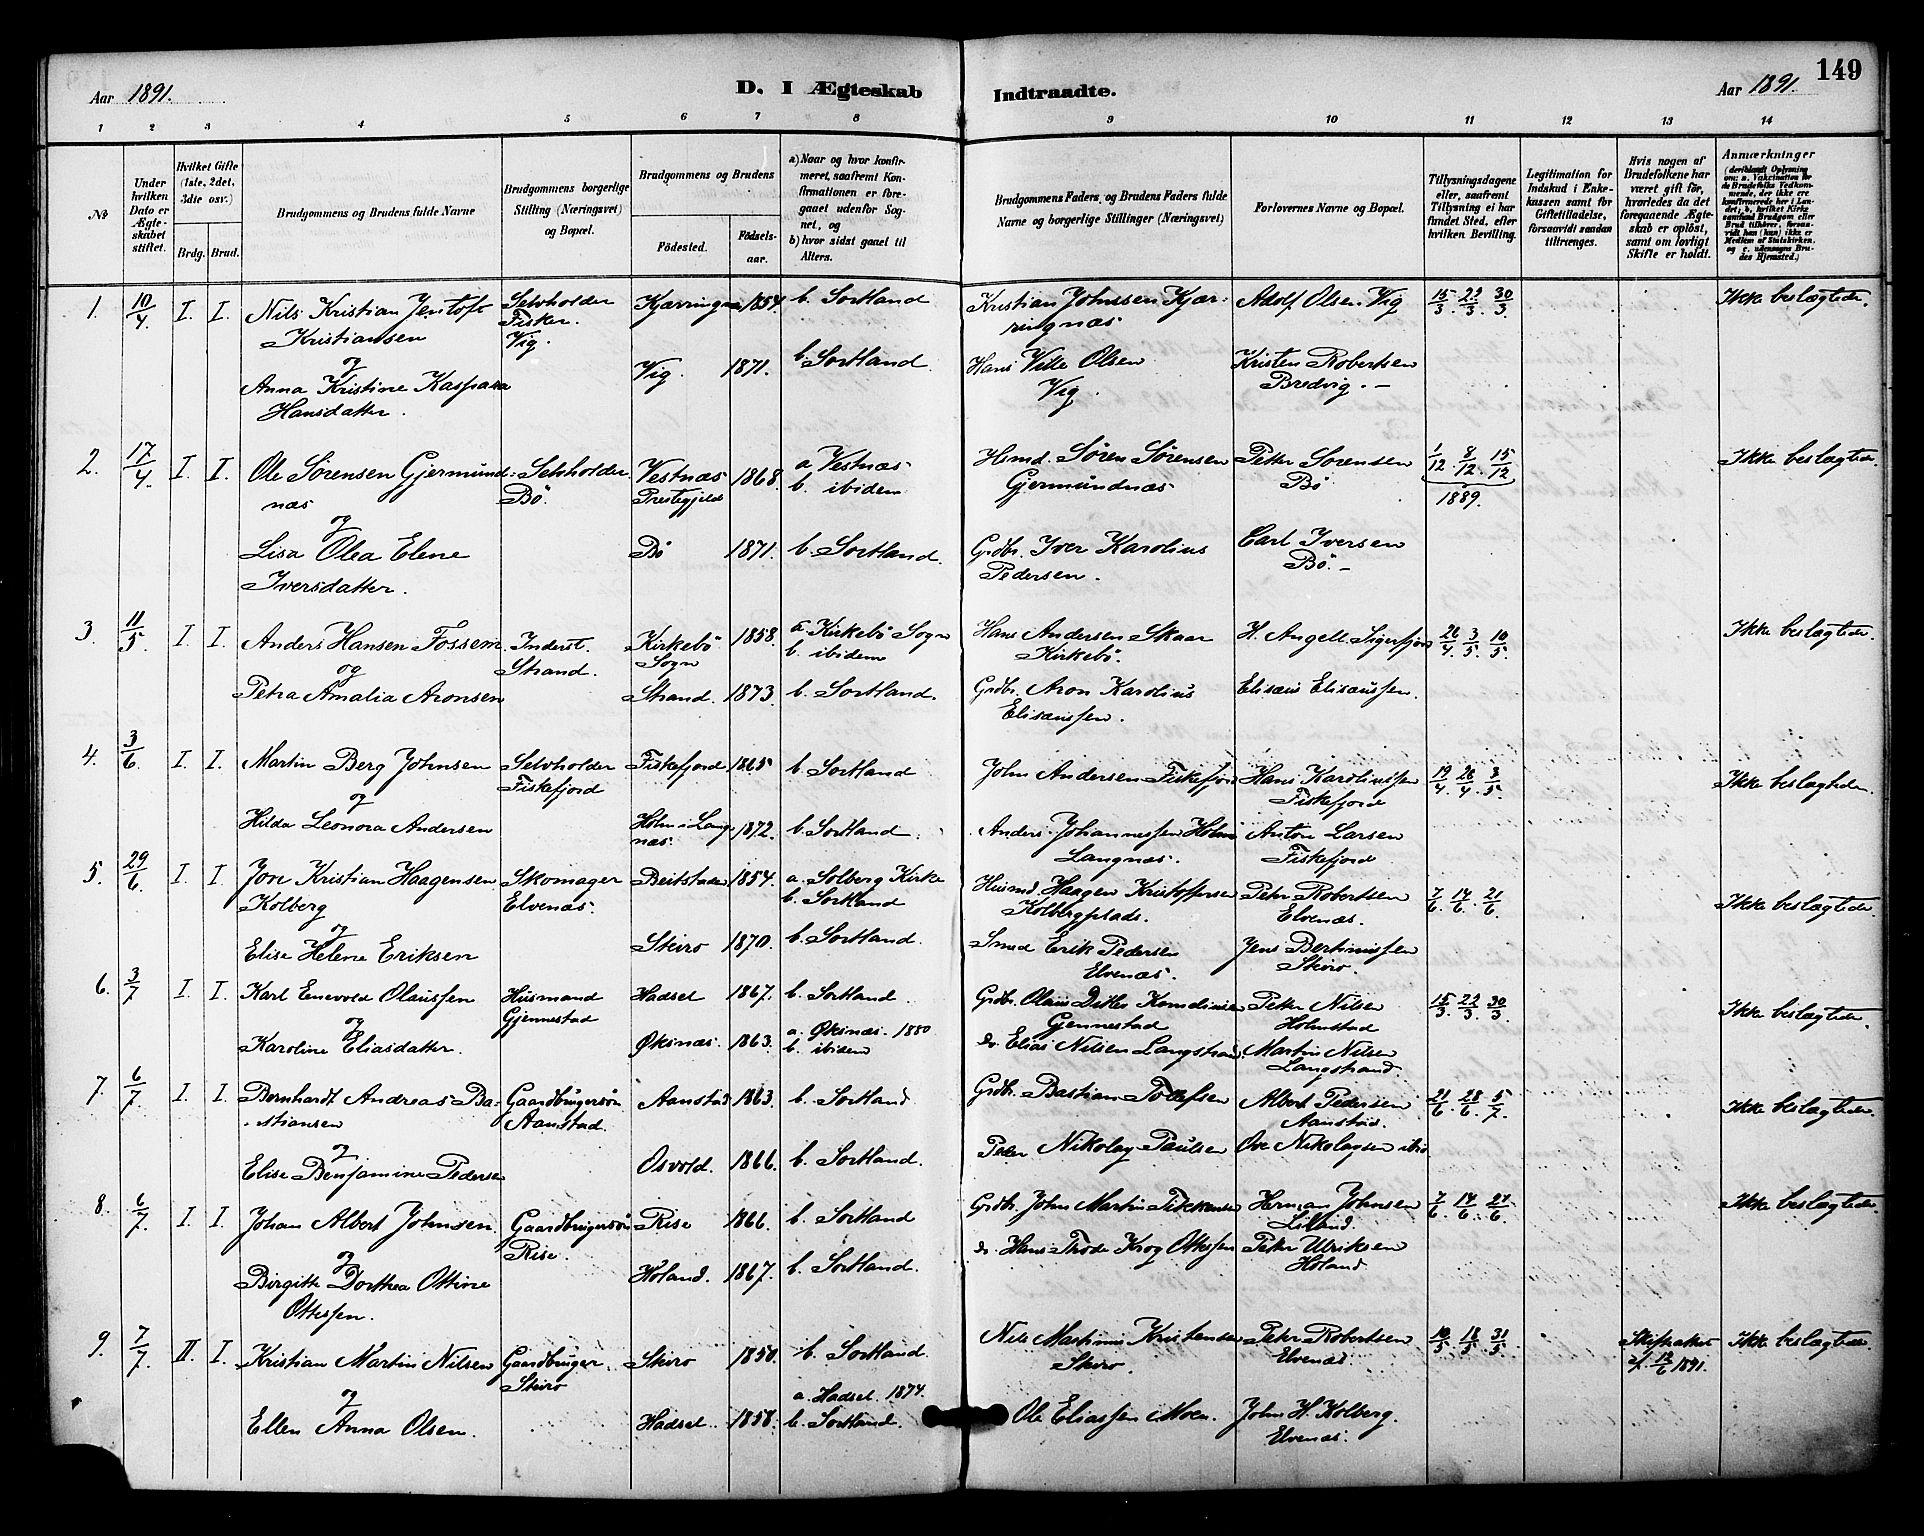 149
Aar 1891.
D. I Ægteskab
Indtraadte.
Aar 1891.
1 2 3 4 5 6 7 8 9 10 11 12 13 14
No
Under hvilken Dato er Ægte-skabet stiftet.
Hvilket Gifte (1ste, 2det, 3die osv.)
Brdg. Brud.
Brudgommens og Brudens fulde Navne
Brudgommens borgerlige Stilling (Næringsvei) og Bopæl.
Brudgommens og Brudens
Födested.
Födsels-aar.
a) Naar og hvor konfir-meret, saafremt Kon-firmationen er fore-gaaet udenfor Sog-net, og
b) hvor sidst gaaet til Alters.
Brudgommens Faders, og Brudens Faders fulde Navne og borgerlige Stillinger (Næringsvei)
Forlovernes Navne og Bopæl.
Tillysningsdagene eller, saafremt Tillysning ei har fundet Sted, efter hvilken Bevilling.
Legitimation for Indskud i Enke-kassen samt for Giftetilladelse, forsaavidt saadan tiltrænges.
Hvis nogen af Brudefolkene har været gift för, hvorledes da det foregaaende Ægte-skab er oplöst, samt om lovligt Skifte er holdt.
Anmærkninger
1. 10/4 I. I. Nils Kristian Jentoft Selvholder Kjærringnæs 1854. b. Sortland Kristian Johnssen Kjær- Adolf Olsen Vig 15/3 22/3 30/3 Ikke beslægtede.
Kristiansen Fisker. ringnæs
og Vig.
Anna Kristine Kaspara Vig. 1871. b. Sortland. Hans Ville Olsen Kristen Robertsen
Hansdatter. Vig. Bredvig.
2. 17/4 I. I. Ole Sørensen Gjermund- Selvholder Vestnæs 1868. a Vestnæs Hsmd. Søren Sørensen Petter Sørensen 1/12. 8/12. 15/12 Ikke beslægtede.
næs Bö. Prestegjeld b. ibidem Gjermundnæs Bö 1889.
og
Lisa Olea Elene Bö 1871. b. Sortland. Grdbr. Iver Karolius Carl Iversen
Iversdatter. Pedersen. Bö.
3. 11/5 I I. Anders Hansen Fossem Inderst. Kirkebö 1858. a. Kirkebö Sogn Hans Andersen Skaar H. Angell Sigerfjord 26/4 3/5 10/5 Ikke beslægtede.
og Strand. Sogn b. ibidem Kirkebö.
Petra Amalia Aronsen Strand. 1873. b. Sortland. Grdbr. Aron Karolius Elisæus Elisæussen.
Elisæussen.
4. 3/6 I. I. Martin Berg Johnsen Selvholder Fiskefjord 1865 b. Sortland John Andersen Fiskefjord Hans Karoliussen 19/4 26/4 3/5 Ikke beslægtede.
og Fiskefjord Fiskefjord
Hilda Leonora Andersen Holm i Lang- 1872. b. Sortland. Anders Johannessen Holm Anton Larsen
næs. Langnæs. Fiskefjord
5. 29/6 I. I. Jon Kristian Haagensen Skomager Beitstaden 1854. a. Solberg Kirke Husmd. Haagen Kristoffersen Petter Robertsen 7/6 14/6 21/6 Ikke beslægtede.
Kolberg Elvenæs. b. Sortland Kolbergplads. Elvenæs.
og
Elise Helene Eriksen Steiro 1870. b. Sortland. Smed Erik Pedersen Jens Bertinussen
Elvenæs. Steiro.
6. 3/7 I. I. Karl Enevold Olaussen Husmand Hadsel 1867. b. Sortland. Grdbr. Olaus Ditlev Petter Nilsen 15/3 22/3 30/3 Ikke beslægtede.
og Gjennestad Gjennestad Holmstad
Karoline Eliasdatter. Øksnæs. 1863. a. Øksnæs. 1880 do. Elias Nilsen Langstrand Martin Nilsen
b. ibidem Langstrand.
7. 6/7 I. I. Bernhardt Andreas Ba- Gaardbrugersön Aanstad 1863. b. Sortland Grdbr. Bastian Tollefsen Albert Pedersen 21/6 28/6 5/7 Ikke beslægtede
stiansen Aanstad. Aanstad.
og
Elise Benjamine Pedersen Osvold. 1866. b. Sortland. Peder Nikolay Paulsen Ove Nikolaysen ibid
8. 6/7 I. I. Johan Albert Johnsen Gaardbrugersön Rise 1866. b. Sortland Grdbr. John Martin Herman Johnsen 7/6 14/6 21/6 Ikke beslægtede.
og Rise. Liland.
Birgitte Dorthea Ottine Holand. 1867. b. Sortland. do. Hans Thode Krog Ottesen Petter Ulriksen
Ottessen. Holand
9. 7/7 II. I. Kristian Martin Nilsen Gaardbruger Steiro 1850. b. Sortland Nils Martinus Kristensen Petter Robertsen 10/5 18/5 31/5 Skifteattest Ikke beslægtede.
og Steiro Steiro. Elvenæs. af 12/6 1891.
Ellen Anna Olsen. Hadsel 1858. a. Hadsel 1874. Ole Eliassen Moen. John H. Kolberg.
b. Sortland. Elvenæs.